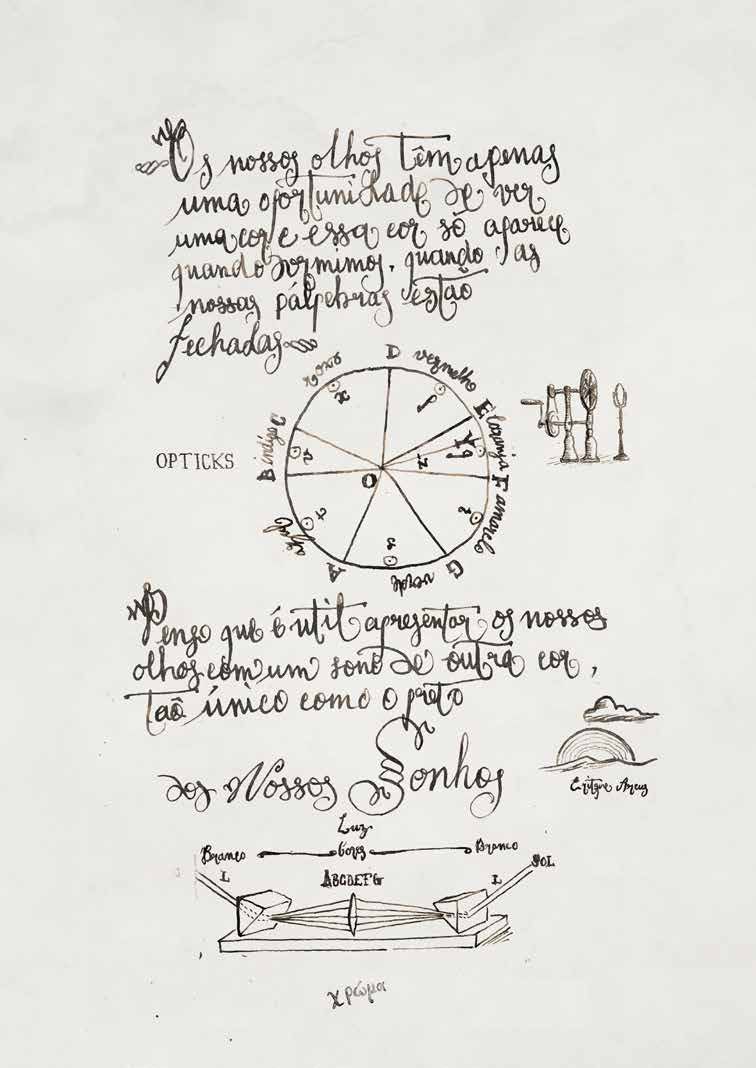 Os nossos olhos têm apenas
uma oportunidade de ver
uma cor e essa cor só aparece
quando dormimos, quando as
nossas pálpebras estão
fechadas
D vermelho E laranja F amarelo G verde A azul B indigo C roxo
O
OPTICKS
Penso que é útil apresentar os nossos
olhos com um sono de outra cor,
tão único como o preto
dos Nossos Sonhos
Luz
Branco Cores Branco
L ABCDEFG L SOL
χρώμα